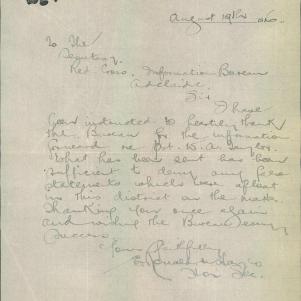 August 19th 1940.
To The
Secretary.
Red Cross. Information Bureau
Adelaide.
Sir
I have
been instructed to heartily thank
the Bureau for the information
forward re Pvt. W. A. Taylor.
What has been sent has been
sufficient to deny any false
statements which were afloat
in this district on the matter
Thanking you once again
and wishing the Bureau every
success
Yours faithfully
Hon Sec.